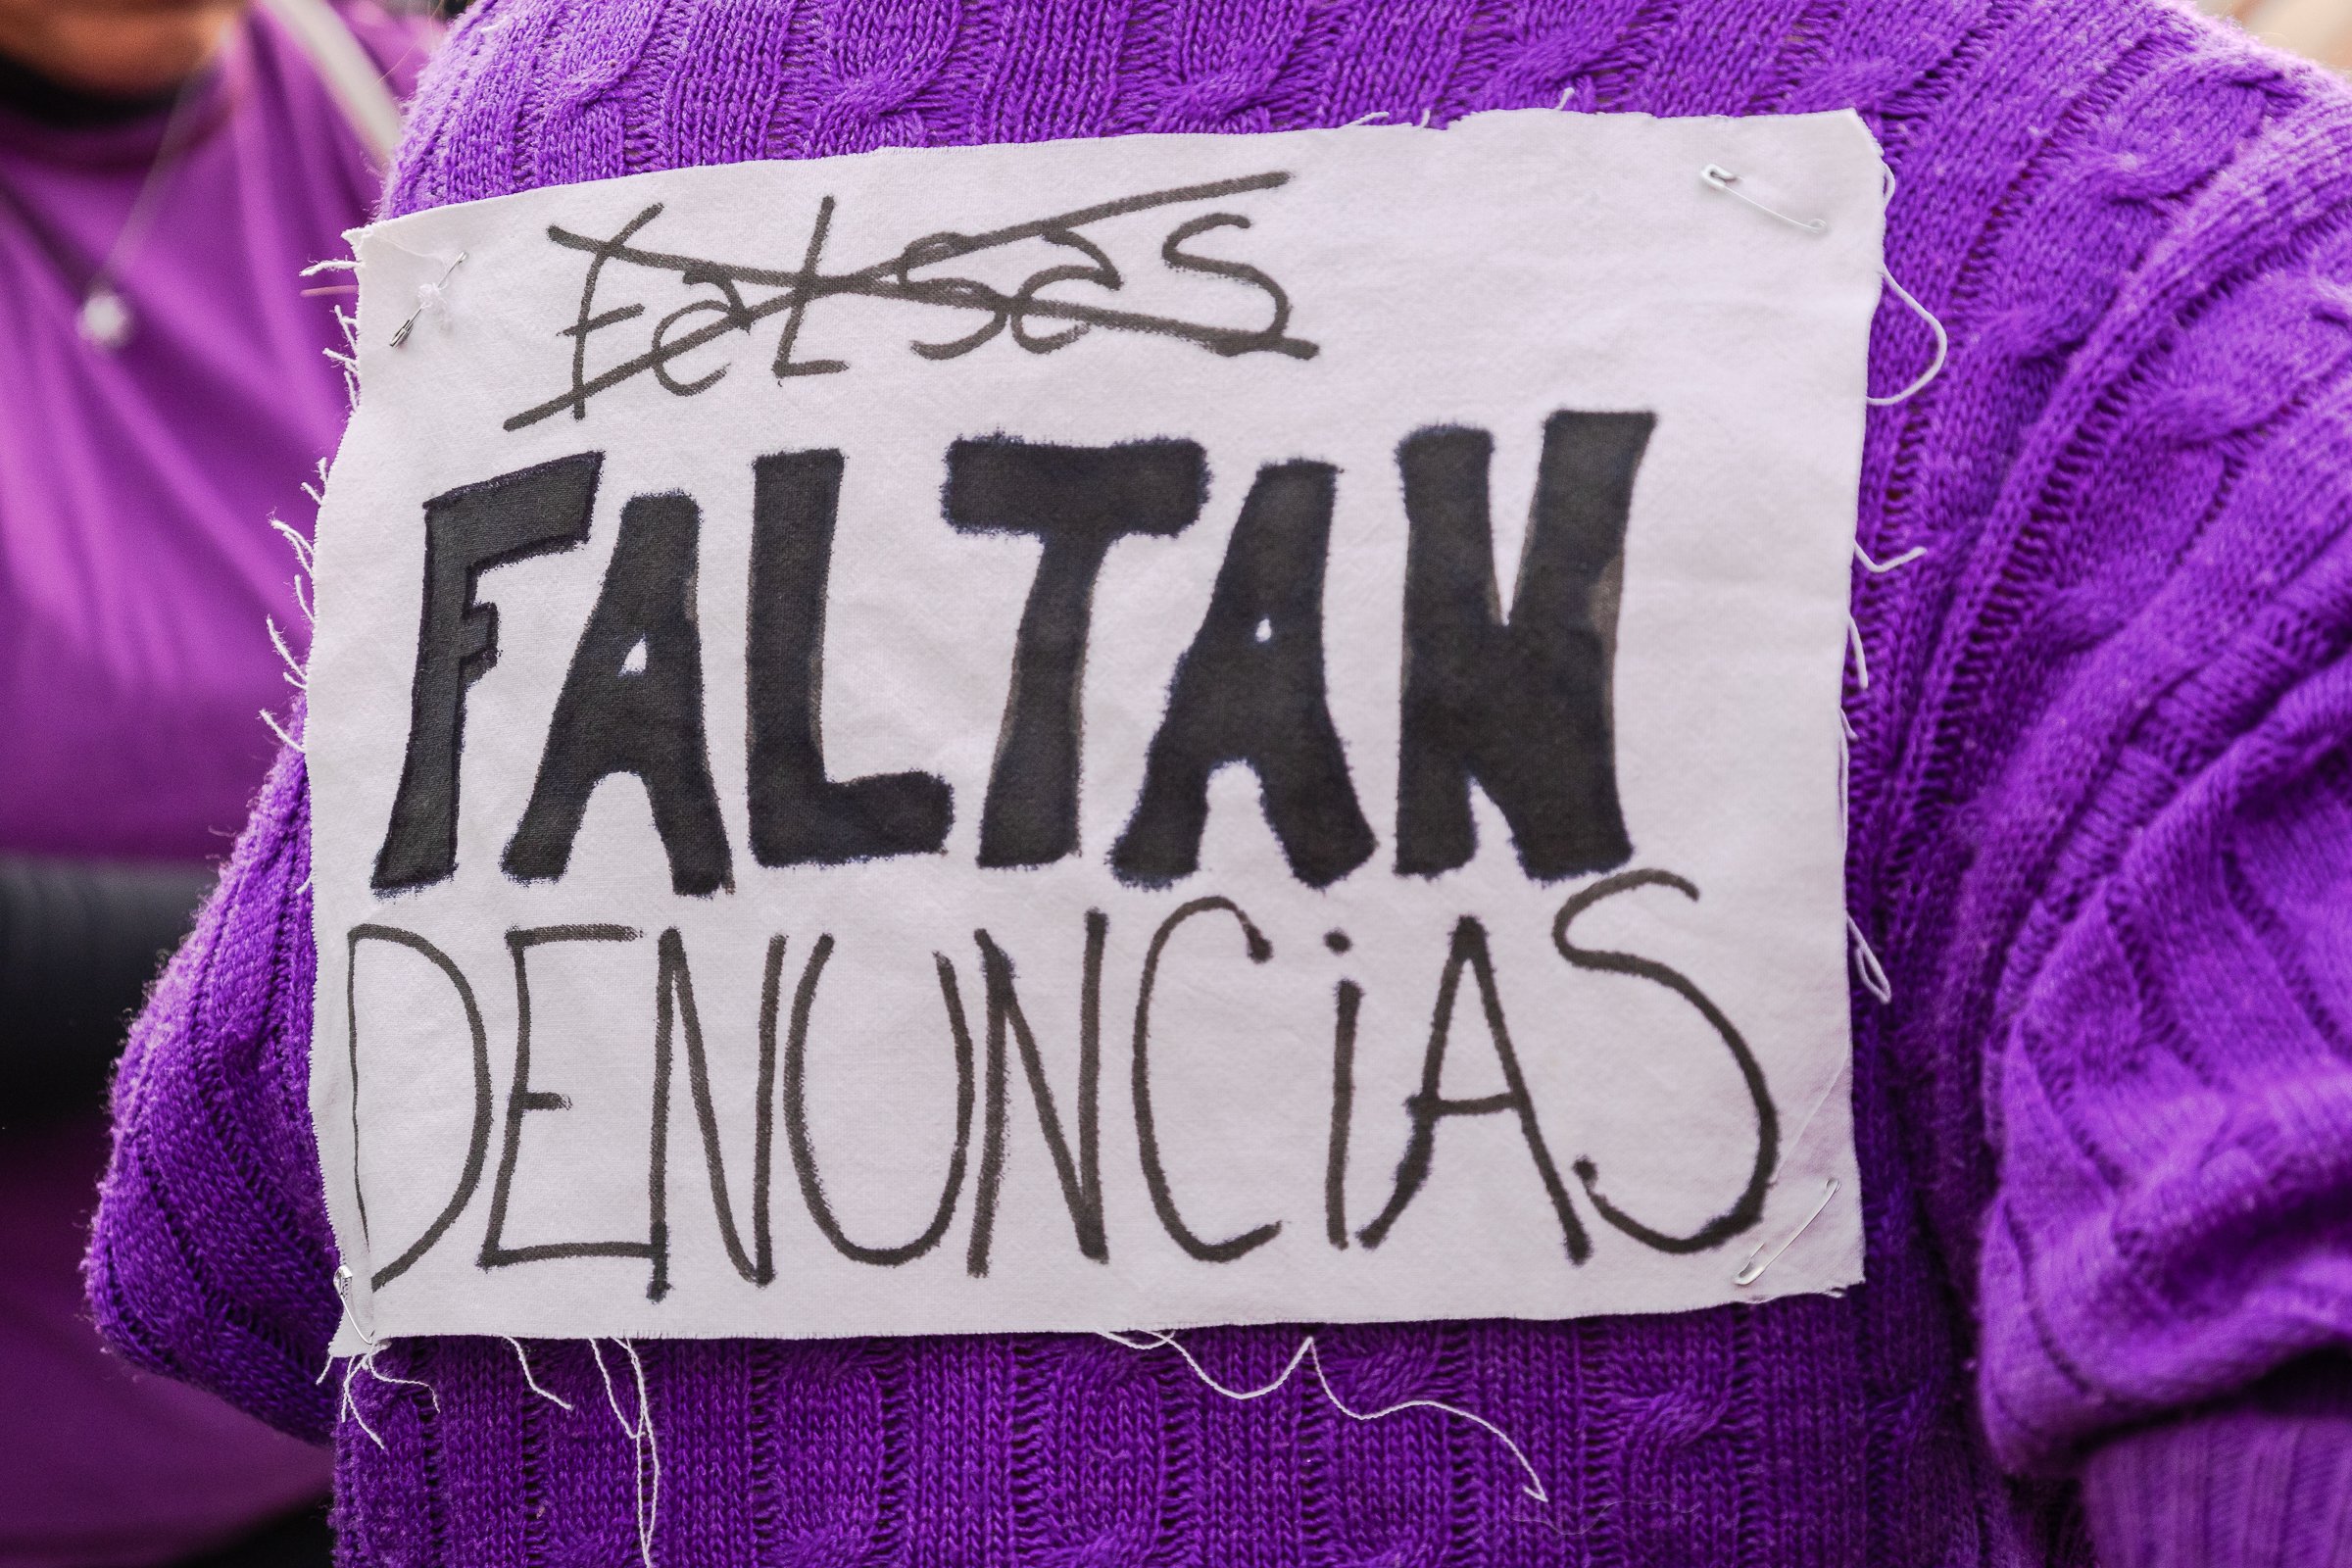 FaLSaS
FALTAN
DENUNCiAS